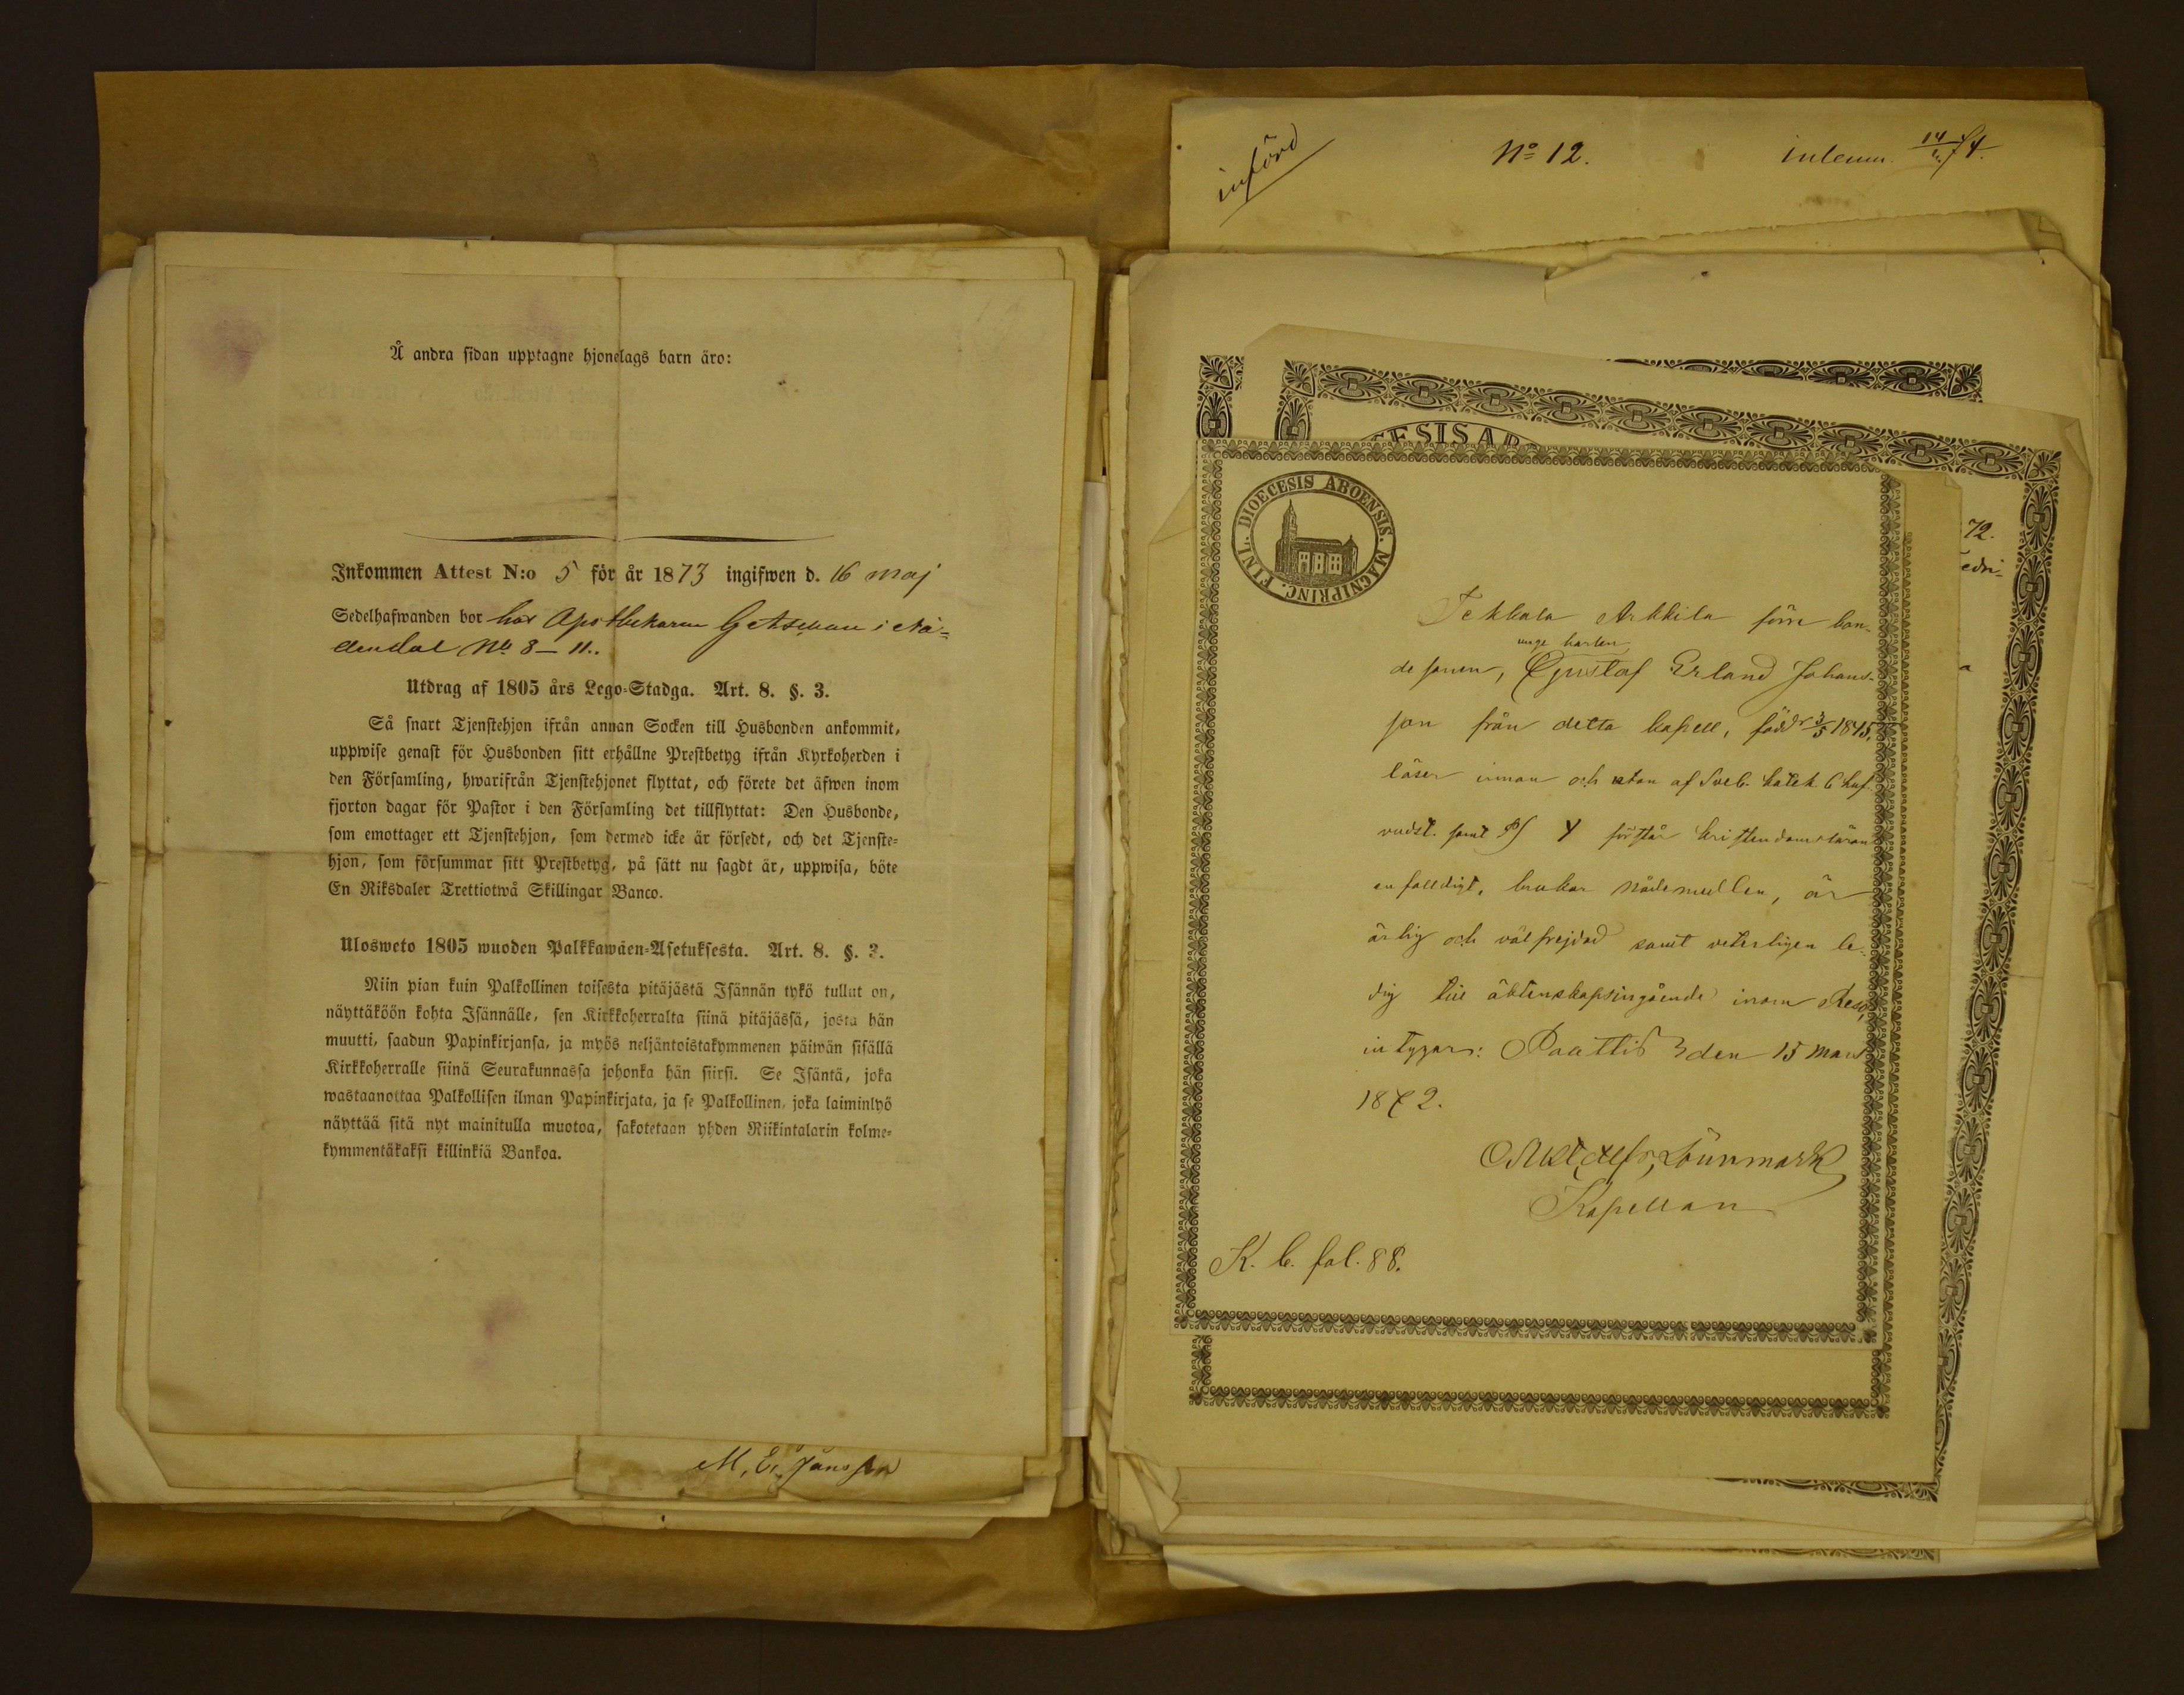 Å andra sidan upptagne hjonelags barn äro:
Inkommen Attest N:o 5 för år 1873 ingifwen d. 16 maj
Sedelhafwanden bor hos Apothekaren Getschan i Nå-
dendal No 8–11.
Utdrag af 1805 års Lego-Stadga. Art. 8. §. 3.
Så snart Tjenstehjon ifrån annan Socken till Husbonden ankommit,
uppwise genast för Husbonden sitt erhållne Prestbetyg ifrån Kyrkoherden i
den Församling, hwarifrån Tjenstehjonet flyttat, och förete det äfwen inom
fjorton dagar för Pastor i den Församling det tillflyttat: Den Husbonde,
som emottager ett Tjenstehjon, som dermed icke är försedt, och det Tjenste-
hjon, som försummar sitt Prestbetyg, på sätt nu sagdt är, uppwisa, böte
En Riksdaler Trettiotwå Skillingar Banco.
Ulosweto 1805 wuoden Palkkawäen-Asetuksesta. Art. 8. §. 3.
Niin pian kuin Palkollinen toisesta pitäjästä Isännän tykö tullut on,
näyttäköön kohta Isännälle, sen Kirkkoherralta siinä pitäjässä, josta hän
muutti, saadun Papinkirjansa, ja myös neljäntoistakymmenen päiwän sisällä
Kirkkoherralle siinä Seurakunnassa johonka hän siirsi. Se Isäntä, joka
wastaanottaa Palkollisen ilman Papinkirjata, ja se Palkollinen, joka laiminlyö
näyttää sitä nyt mainitulla muotoa, sakotetaan yhden Riikintalarin kolme-
kymmentäkaksi killinkiä Bankoa.
M. E. Jansson
införd
No 12.
inlemn. 14/74.
ESIS AB
72.
edri-
a
DIOECESIS ABOENSIS. MAGNI PRINC. FINL.
Tekkala Arkkila förre bon-
unge karlen
de sonen, Gustaf Erland Johans-
son från detta kapell, född 3/5 1845,
läser innan och utan af Sveb. katek 6 huf-
vudst. samt förstår kristendomsläran
enfalldigt, brukar nådemedlen, är
ärlig och välfrejdad samt veterligen le-
dig till äktenskapsingående inom Reso,
intygar: Paattis den 15 Mars
1872.
Lönnmark
Kapellan
K. b. fol. 88.